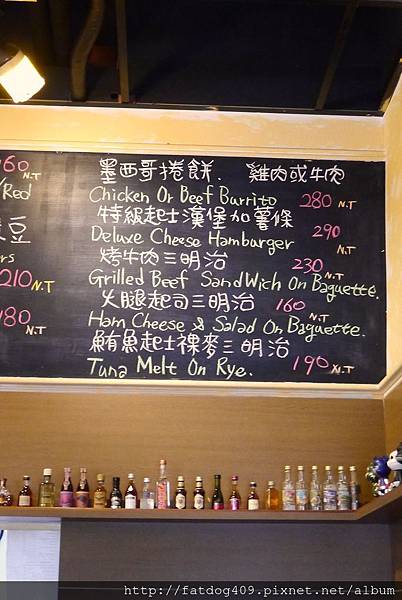 墨西哥捲餅. 雞肉或牛肉
Chicken Or Beef Burrito 280 N.T
特級起士漢堡加薯條
Deluxe Cheese Hamburger 290 N.T
烤牛肉三明治 230 N.T
Grilled Beef SandWich On Baguette.
火腿起司三明治 160 N.T
Ham Cheese & Salad On Baguette.
鮪魚起士裸麥三明治
Tuna Melt On Rye. 190 N.T
60 N.T
/Red
豆
rs
210 N.T
180 N.T
http://fatdog409.pixnet.net/album